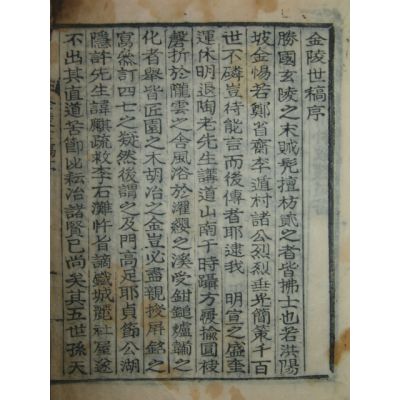 金陵世稿序
勝國玄陵之末賊髡擅枋貳之者皆拂士也若洪陽
坡金惕若鄭省齋李遁村諸公烈烈垂光簡策千百
世不磷豈待能言而後傳者耶逮我 明宣之盛奎
運休明退陶老先生講道山南于時躡方屨揄圓褄
磬折於隴雲之舍風俗於濯纓之溪受鉗鎚爐鞴之
化者擧皆匠園之木胡冶之金豈必盡親授屏銘之
寫然訂四七之疑然後謂之及門高足耶貞節公湖
隱許先生諱麒疏救李石灘忤旨謫鐵城麗社屋遂
不出其直道苦節比耘冶諸賢已尚矣其五世孫天